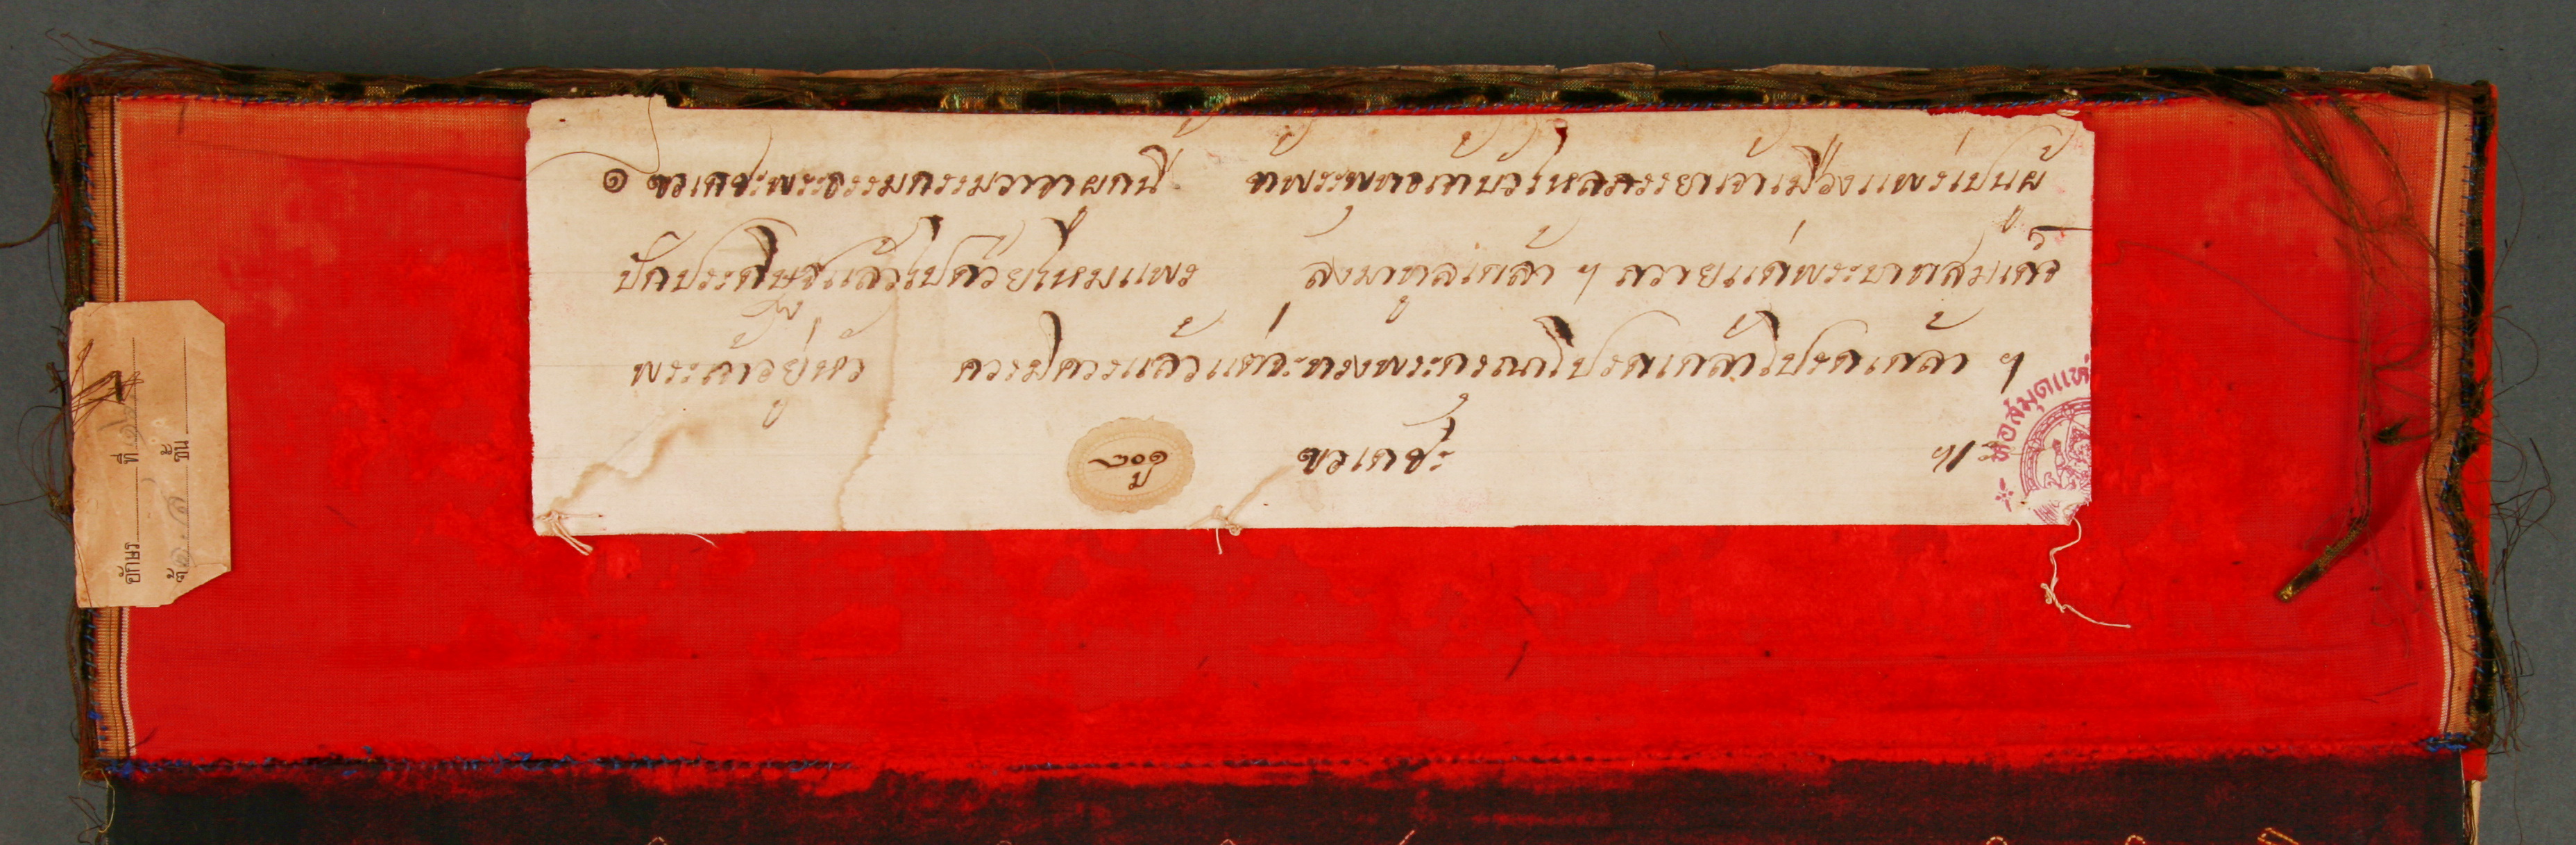 ๏ ขอเดชะพระธรรมกรรมวาจาผูกนี้ ข้าพระพุทธเจ้าบัวไหลภรรยาเจ้าเมืองแพร่เปนผู้
ปักประดิษฐแล้วไปด้วยไหมแพร ส่งมาทูลเกล้า ฯ ถวายแด่พระบาทสมเด็จ
พระเจ้าอยู่หัว ควรมิควรแล้วแต่จะทรงพระกรุณาโปรดเกล้าโปรดเกล้า ฯ
ขอเดชะ ฯะ
หอสมุดแห่
อักษร ที่
ตู้ ชั้น